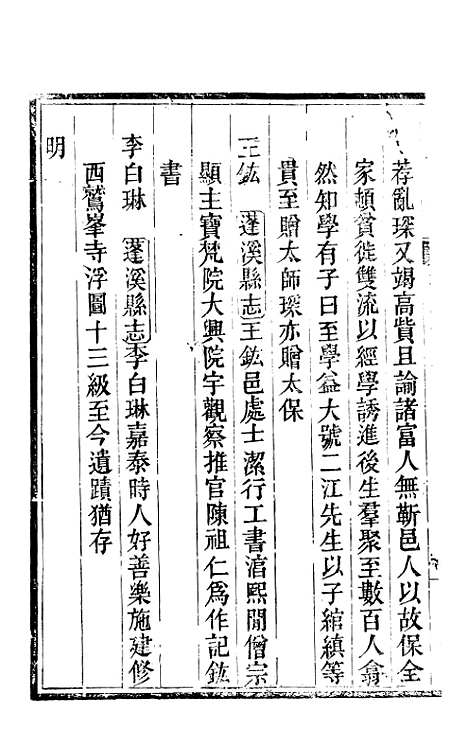 荐亂琛又竭高貲且諭諸富人無靳邑人以故保全
家頓貧徙雙流以經學誘進後生羣聚至數百人翕
然知學有子曰至學益大號二江先生以子綰縝等
貴至贈太師琛亦贈太保
王鈜　蓬溪縣志王鈜邑處士潔行工書淯熙閒僧宗
顯主寶梵院大興院宇觀察推官陳祖仁爲作記鈜
書
李白琳　蓬溪縣志李白琳嘉泰時人好善樂施建修
西鷲峯寺浮圖十三級至今遺蹟猶存
明